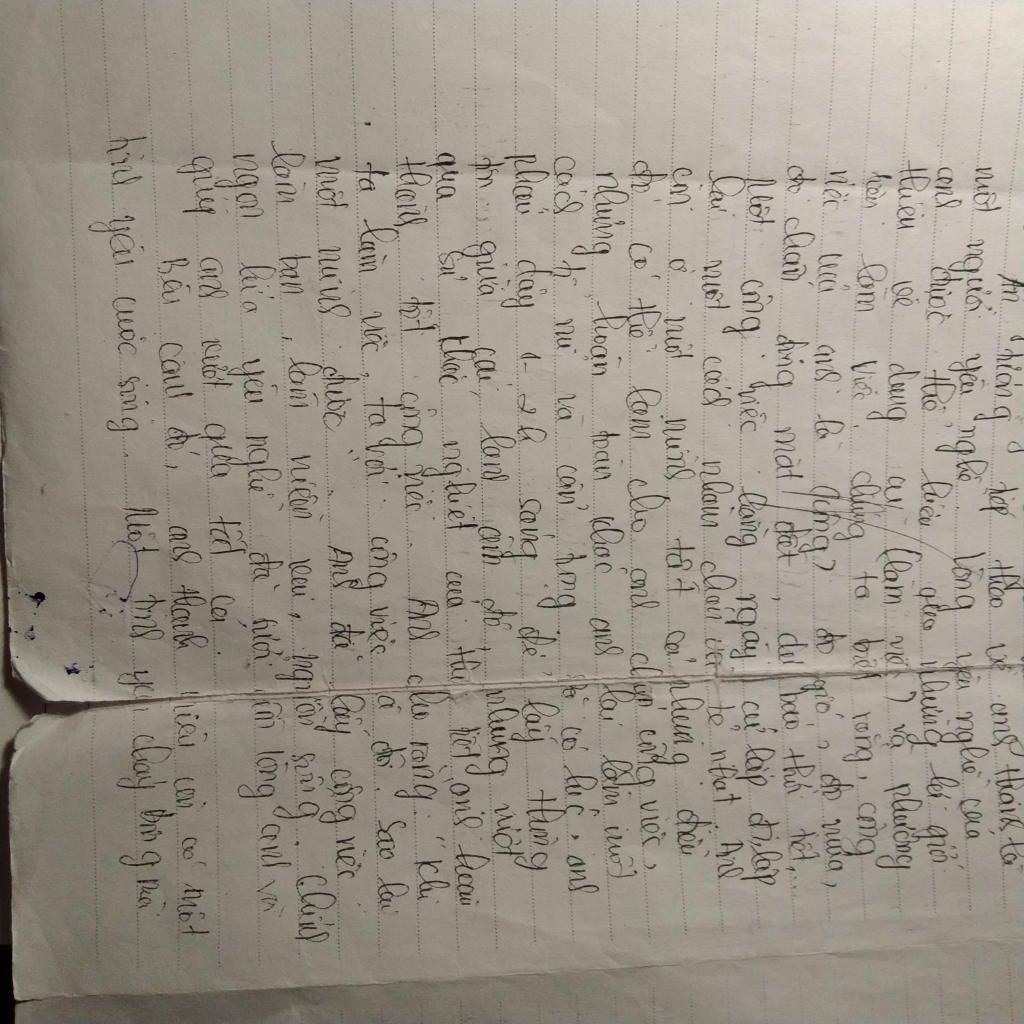 Ấn tượng tiếp theo về anh thanh là
một người yêu nghề. Lòng yêu nghề của
anh được thể hiện qua những lời giới
thiệu về dung cụ làm việc và phương
tiện làm việc. Chúng ta biết rằng, công
việc của anh là đo gió, đo mưa,
đo chấn động mặt đất, dự báo thời tiết,...
Một công việc hằng ngày cứ lặp đi lặp
lại một cách nhàm chán và tẻ nhạt. Anh
còn ở một mình tất cả những điều
đó có thể làm cho anh chán công việc,
nhưng hoàn toàn khác anh lại làm một
cách tỉ mỉ và cẩn trọng có lúc anh
phải dậy 1 - 2h sáng để lấy thông
tin giữa cái lạnh ẩm đó nhưng vượt
qua sự khắc nghiệt của thời tiết anh hoàn
thành tốt công việc. Anh cho rằng: "Khi
ta làm việc, ta với công việc là đôi, sao lại
một mình được. Anh đã lấy công việc
làm bạn, làm niềm vui, nguồn sống. Chính
ngọn lửa yêu nghề đã sưởi ấm lòng anh và
giúp anh vượt qua tất cả.
Bên cạnh đó, anh thanh niên còn có một
tình yêu cuộc sống. Một tình yêu cháy bỏng mãi